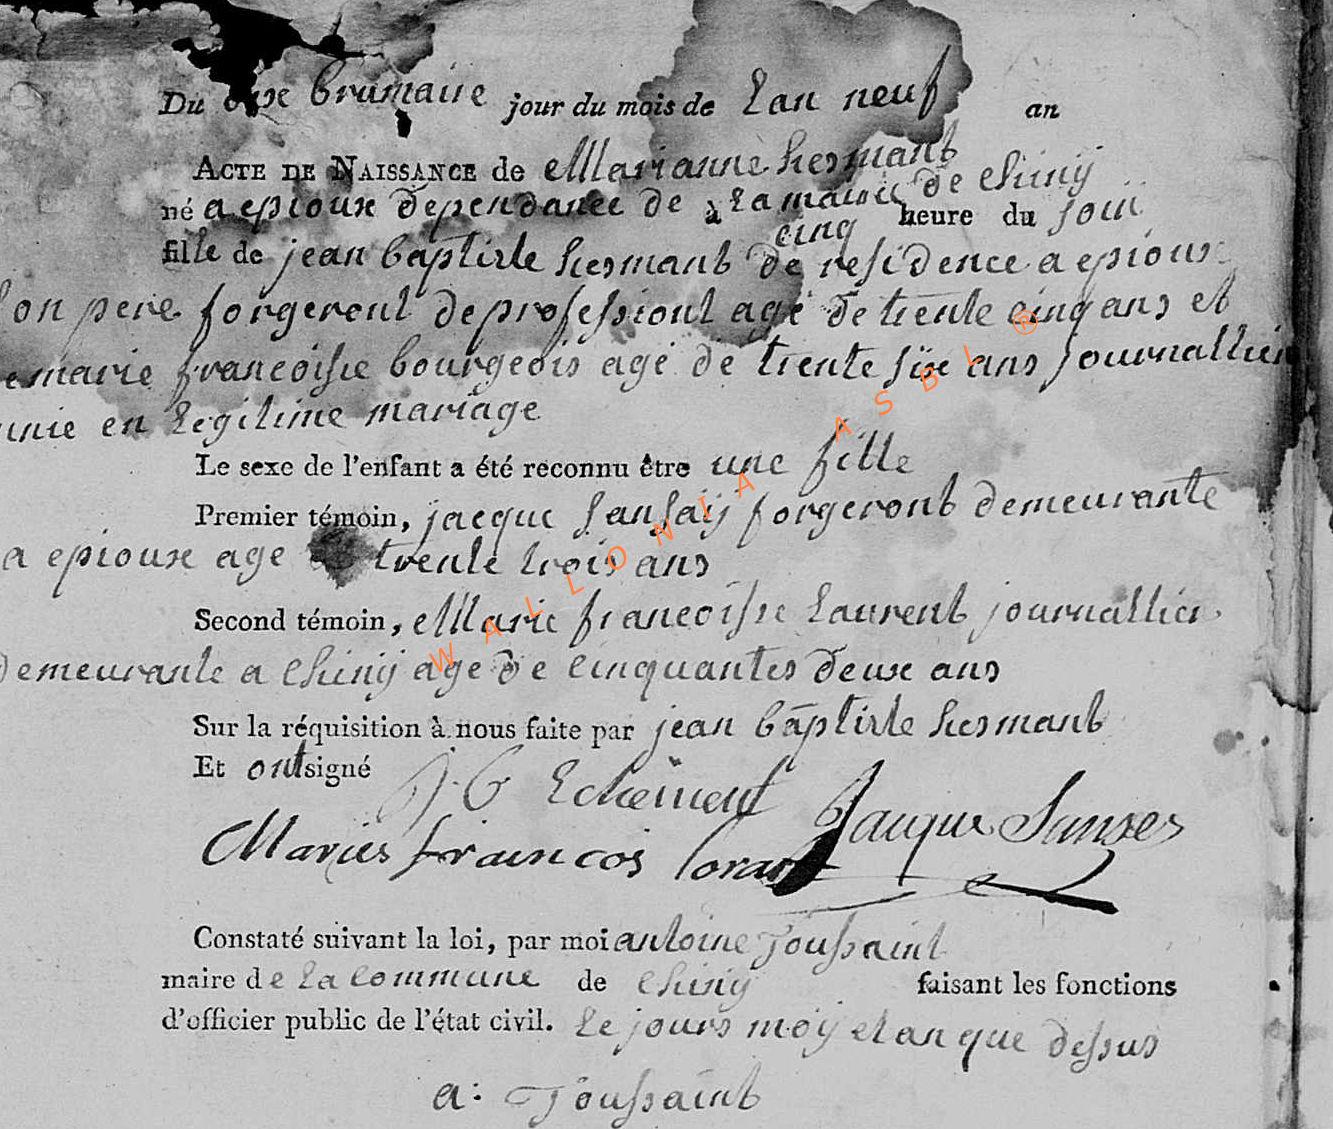 Du onze brumaire jour du mois de Lan neuf an
ACTE DE NAISSANCE de Marianne hesmant
né a epioux dependance de la mairie de chiny
à cinq heure du soir
fille de jean baptiste hesmant de residence a epioux
son pere forgeront de professiont agé de trente cinq ans et
marie francoisse bourgeois age de trente six ans journallier
unie en Legitime mariage
Le sexe de l'enfant a été reconnu être une fille
Premier témoin, jacque forgeront demeurante
a epioux age trente trois ans
Second témoin, Marie francoisse Laurent journallier
demeurante a chiny age de cinquantes deux ans
Sur la réquisition à nous faite par jean baptiste hesmant
Et ont signé J.b Echement Jacque
Maries francois lorant
Constaté suivant la loi, par moi antoine Toussaint
maire de La commune de chiny faisant les fonctions
d'officier public de l'état civil. Le jours moy et an que dessus
a: Toussaint
WALLONIA ASBL ®